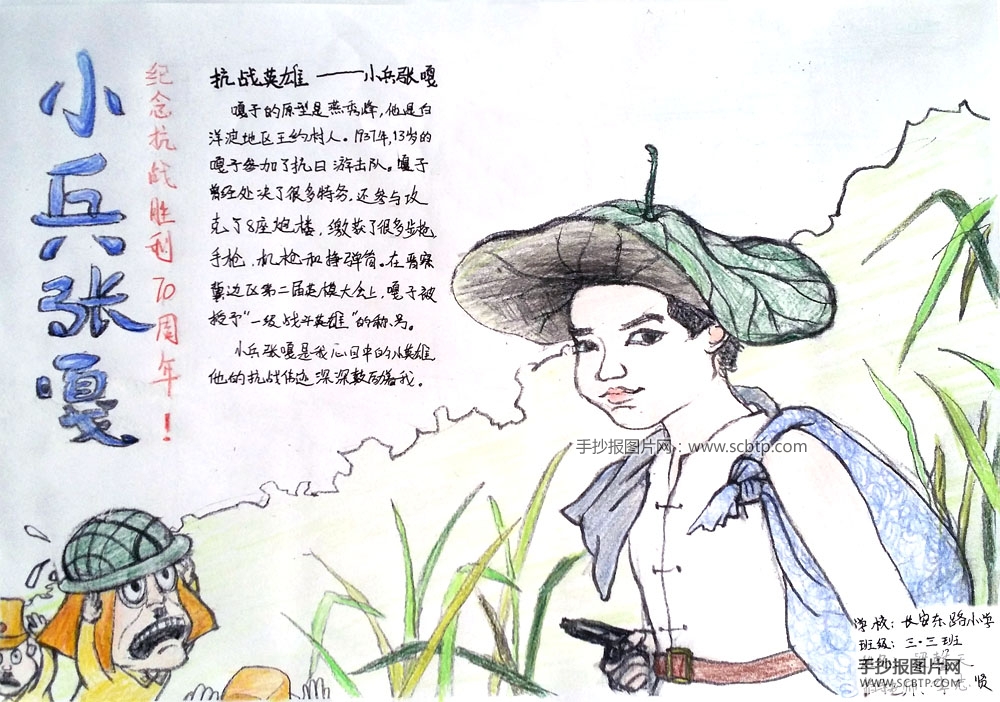 小兵张嘎
纪念抗战胜利70周年！
抗战英雄——小兵张嘎
嘎子的原型是燕秀峰，他是白
洋淀地区王约村人。1937年，13岁的
嘎子参加了抗日游击队。嘎子
曾经处决了很多特务，还参与攻
克了8座炮楼，缴获了很多步枪
手枪、机枪和掷弹筒。在晋察
冀边区第二届英模大会上，嘎子被
授予“一级战斗英雄”的称号。
小兵张嘎是我心目中的小英雄
他的抗战伟迹深深鼓励着我。
手抄报图片网：www.scbtp.com
学校：长安东路小学
班级：三·三班
手抄报图片网
WWW.SCBTP.COM
贤